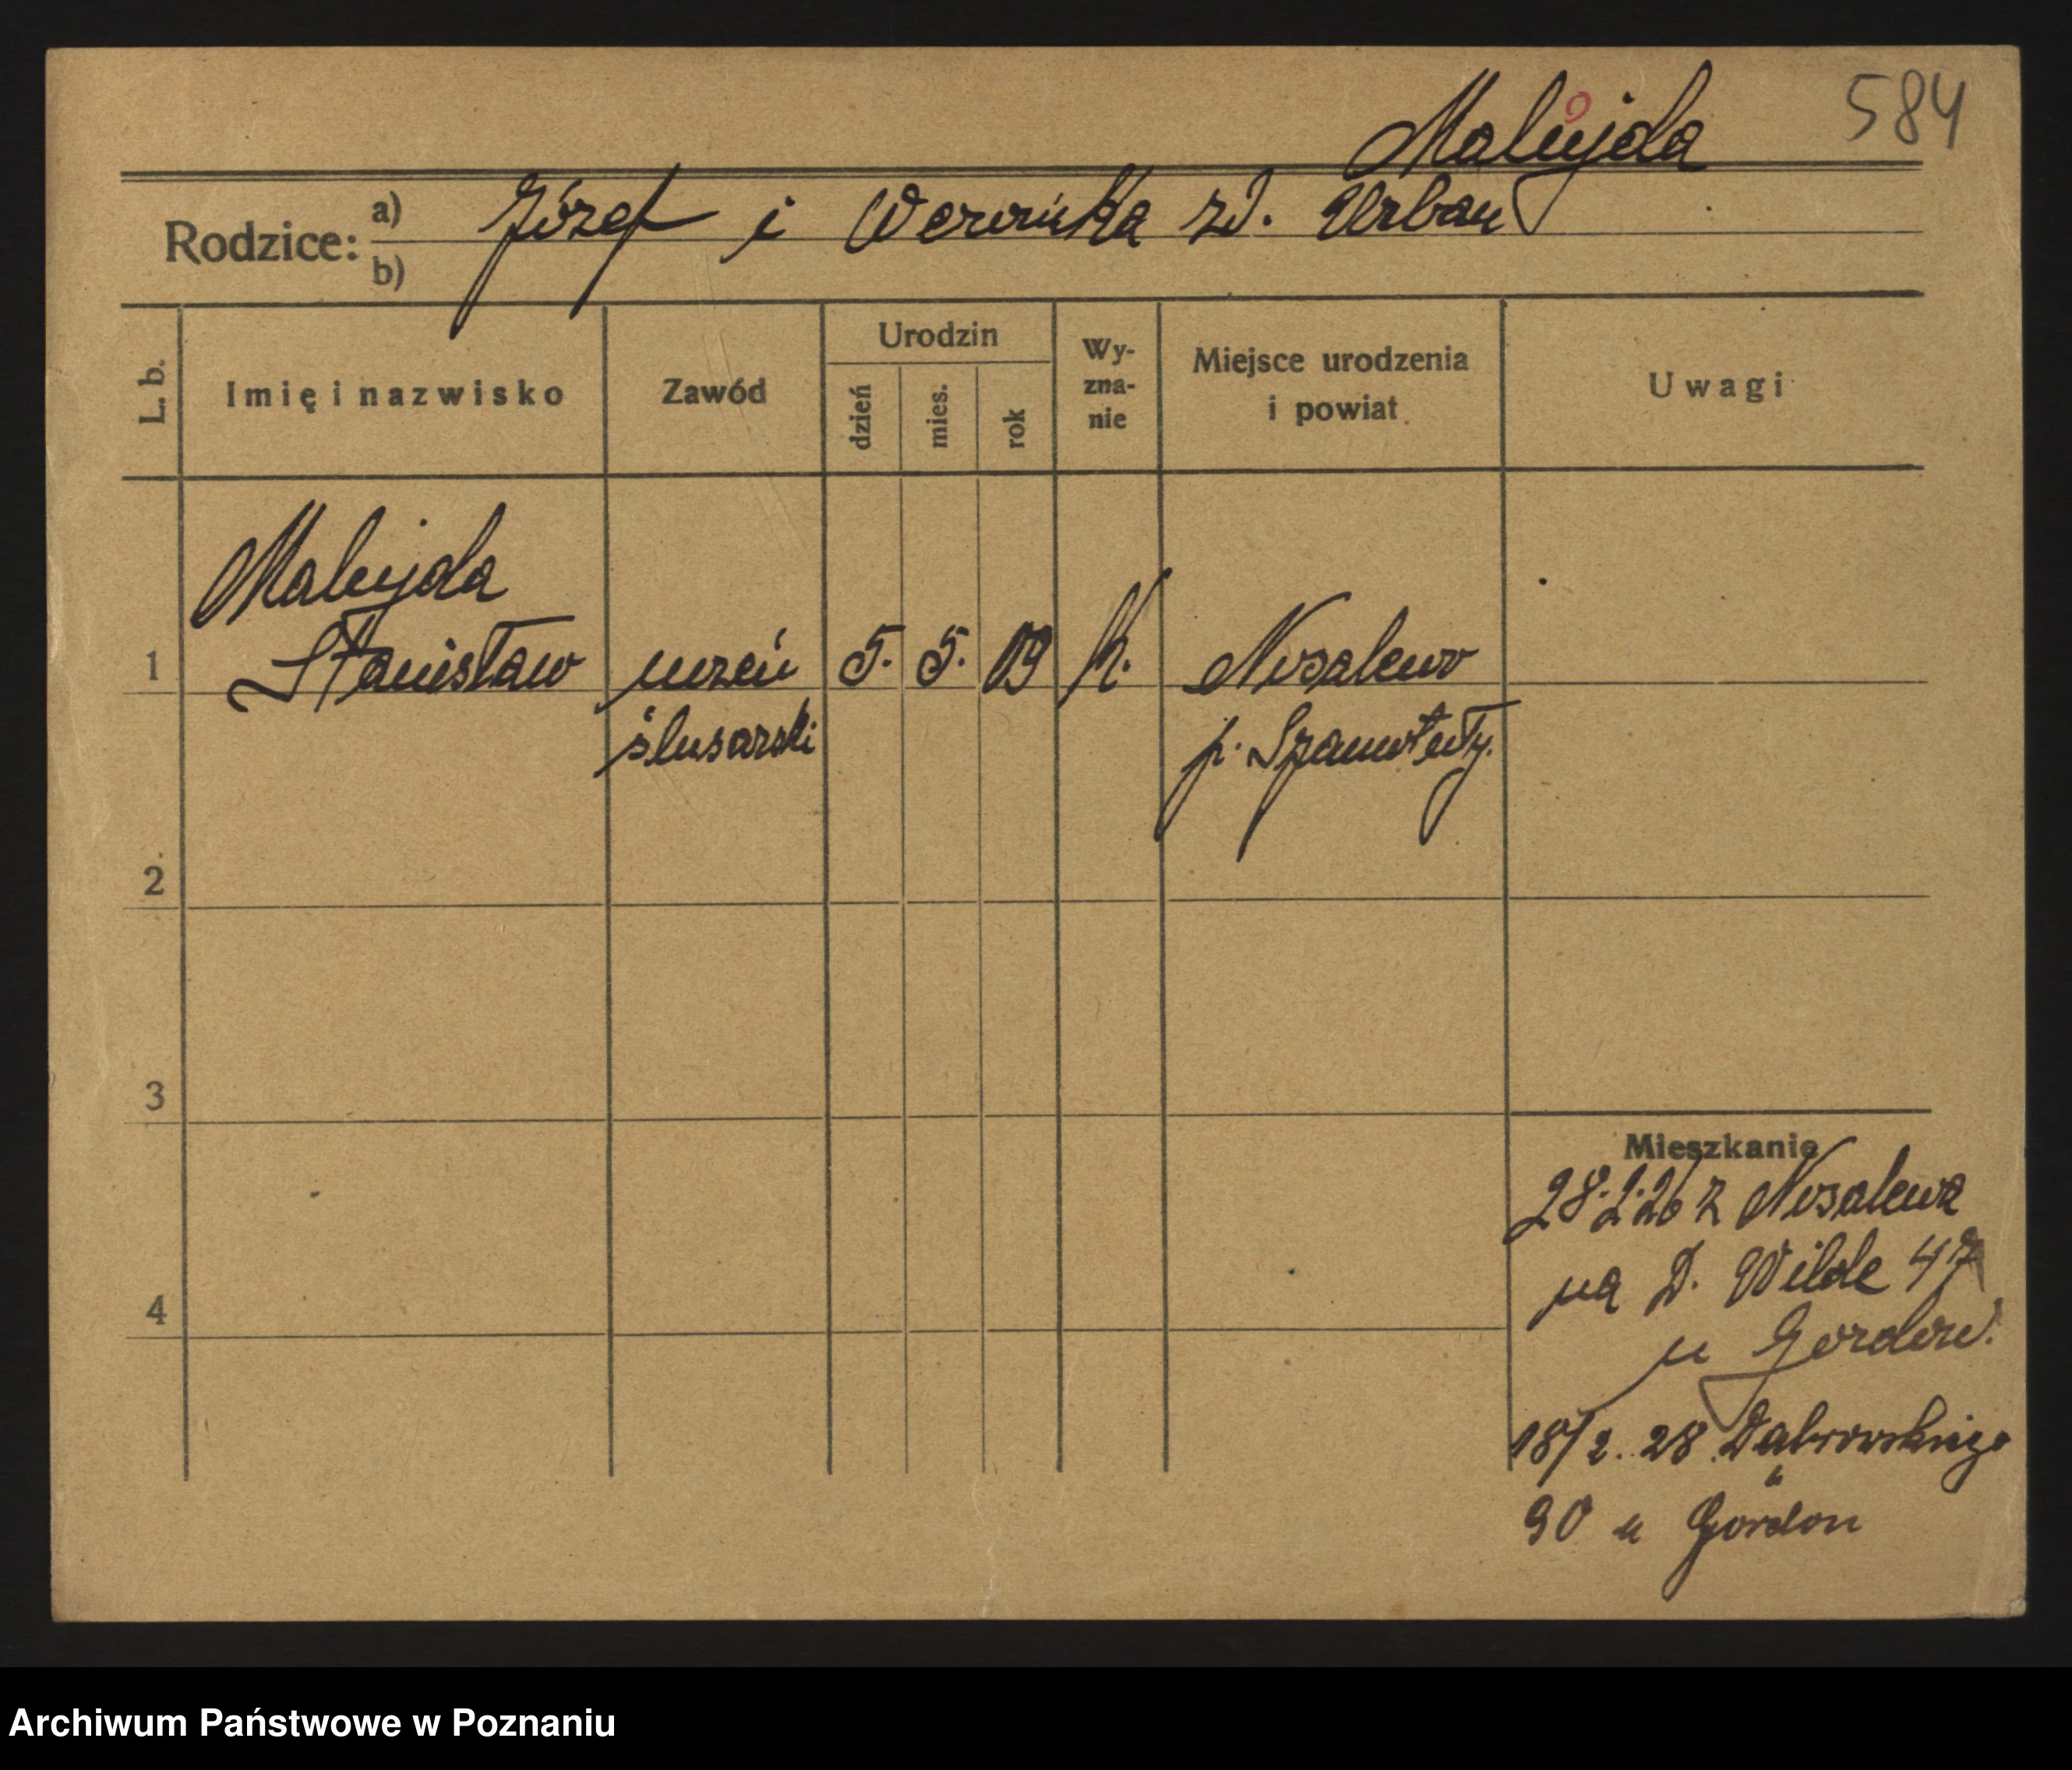 584
Malujda
Rodzice: a) Józef i Weronika zd. Urban
b)
L. b.
Imię i nazwisko
Zawód
Urodzin
dzień
mies.
rok
Wy-
zna-
nie
Miejsce urodzenia
i powiat
Uwagi
Malujda
1 Stanisław uczeń 5. 5. 09 k. Nosalewo
ślusarski p. Szamotuły.
2
3
Mieszkanie
28.2.26 z Nosalewa
na D. Wilde 47
4
u Gordon.
18/2. 28 Dąbrowskiego
90 u Gordon
Archiwum Państwowe w Poznaniu